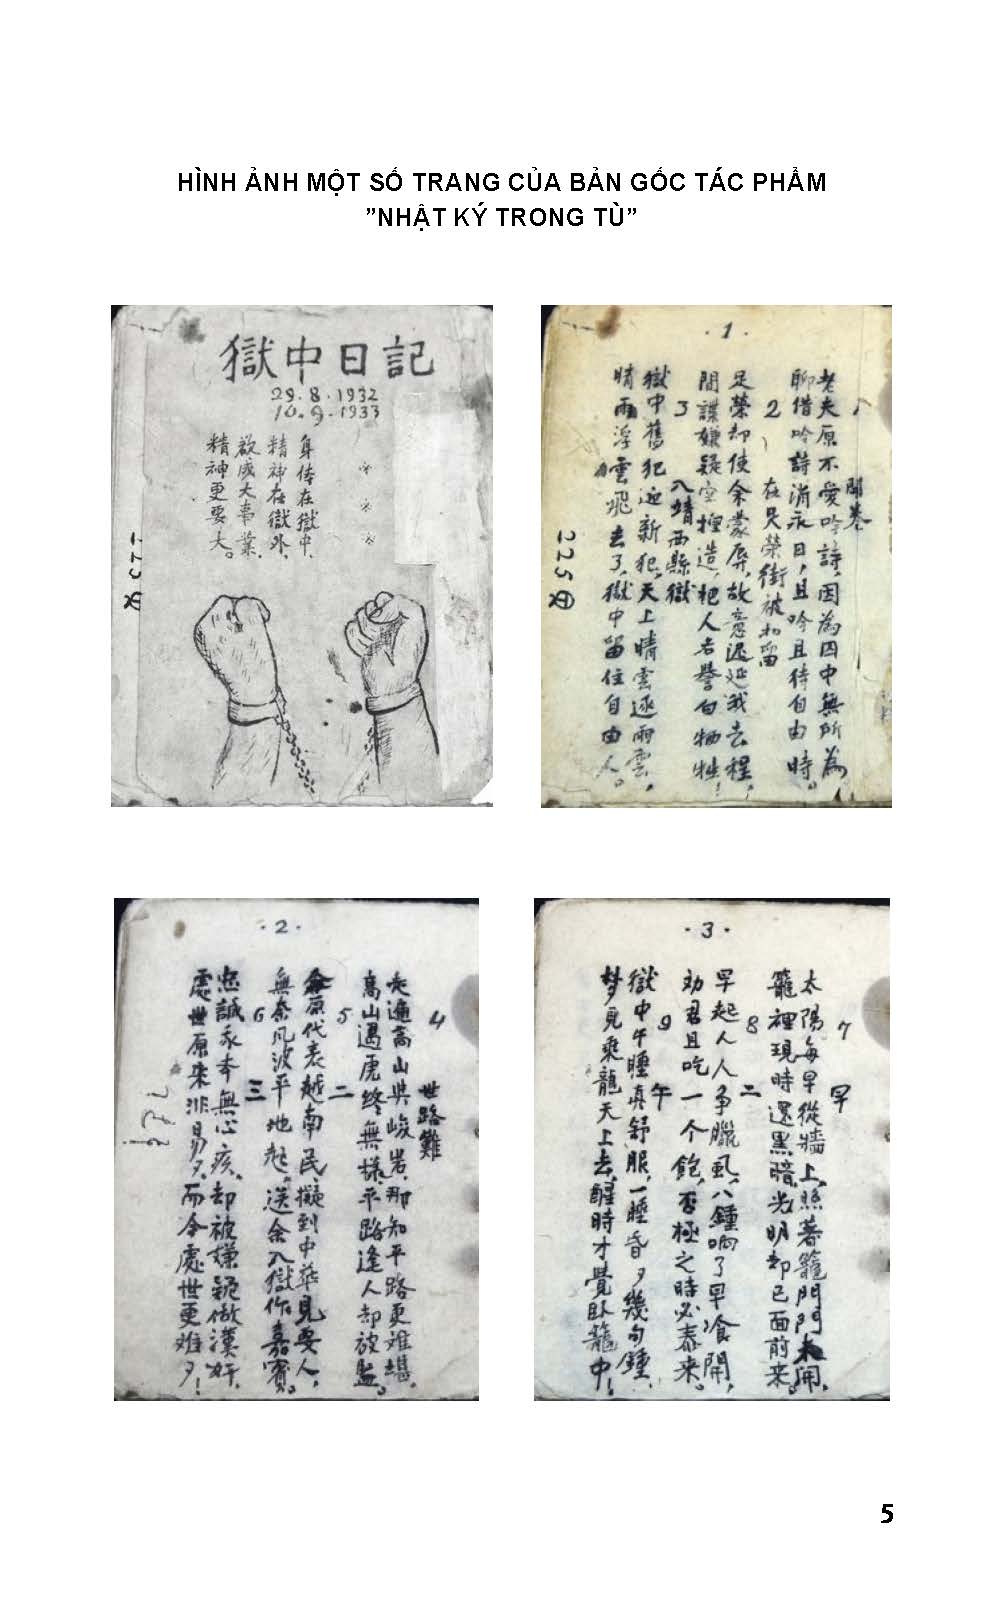 HÌNH ẢNH MỘT SỐ TRANG CỦA BẢN GỐC TÁC PHẨM
”NHẬT KÝ TRONG TÙ”
獄中日記
29.8.1932
10.9.1933
身体在獄中,
精神在獄外,
欲成大事業,
精神更要大。
·1·
1 開卷
老夫原不愛吟詩,因為囚中無所為。
聊借吟詩消永日,且吟且待自由時。
2 在足榮街被扣留
足榮却使余蒙辱,故意遲延我去程,
間諜嫌疑空捏造,把人名譽白牺牲!
3 入靖西縣獄
獄中舊犯迎新犯,天上晴雲逐雨雲,
晴雨浮雲飛去了,獄中留住自由人。
225
·2·
4 世路難
走遍高山與峻岩,那知平路更难堪,
高山遇虎終無樣,平路逢人却被监。
5 二
余原代表越南民,擬到中華見要人,
無奈風波平地起,送余入獄作嘉賓。
6 三
忠誠我本無心疚,却被嫌疑做漢奸,
處世原来非易々,而今處世更难々!
·3·
7 早
太陽每早從墻上,照着籠門門未開,
籠裡現時還黑暗,光明却已面前来。
8 二
早起人人争臘虱,八鐘响了早飡開,
劝君且吃一个飽,否極之時必泰来。
9 午
獄中午睡真舒服,一睡昏々幾句鐘,
梦見乘龍天上去,醒時才覺卧籠中!
5